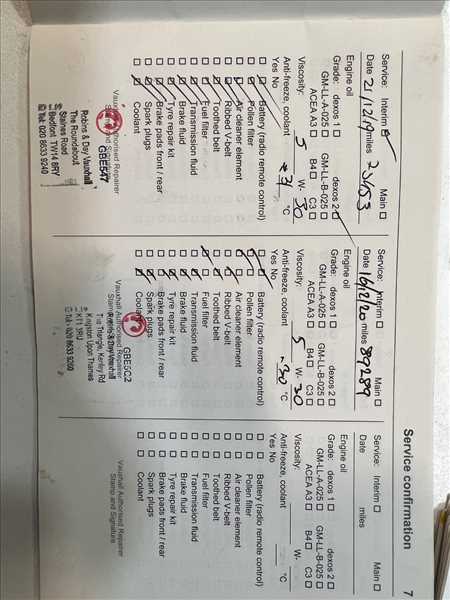 Service confirmation 7
Service: Interim Main
Date 21/12/19 miles
Engine oil
Grade: dexos 1 dexos 2
GM-LL-A-025 GM-LL-B-025
ACEA A3 B4 C3
Viscosity: 5 W- 30
Anti-freeze, coolant °C
Yes No
Battery (radio remote control)
Pollen filter
Air cleaner element
Ribbed V-belt
Toothed belt
Fuel filter
Transmission fluid
Brake fluid
Tyre repair kit
Brake pads front / rear
Spark plugs
Coolant
Vauxhall Authorised Repairer
GBE5A7
Robins & Day Vauxhall
The Roundabout
Staines Road
Bedfont TW14 8RY
Tel: 020 8633 9240
Service: Interim Main
Date 16/12/20 miles 89289
Engine oil
Grade: dexos 1 dexos 2
GM-LL-A-025 GM-LL-B-025
ACEA A3 B4 C3
Viscosity: 5 W- 30
Anti-freeze, coolant -30 °C
Yes No
Battery (radio remote control)
Pollen filter
Air cleaner element
Ribbed V-belt
Toothed belt
Fuel filter
Transmission fluid
Brake fluid
Tyre repair kit
Brake pads front / rear
Spark plugs
Coolant
GBE5C2
Vauxhall Authorised Repairer
Robins & Day Vauxhall
The Triangle, Kenley Rd
Kingston Upon Thames
KT1 3RU
Service: Interim Main
Date miles
Engine oil
Grade: dexos 1 dexos 2
GM-LL-A-025 GM-LL-B-025
ACEA A3 B4 C3
Viscosity: W-
Anti-freeze, coolant °C
Yes No
Battery (radio remote control)
Pollen filter
Air cleaner element
Ribbed V-belt
Toothed belt
Fuel filter
Transmission fluid
Brake fluid
Tyre repair kit
Brake pads front / rear
Spark plugs
Coolant
Vauxhall Authorised Repairer
Stamp and Signature